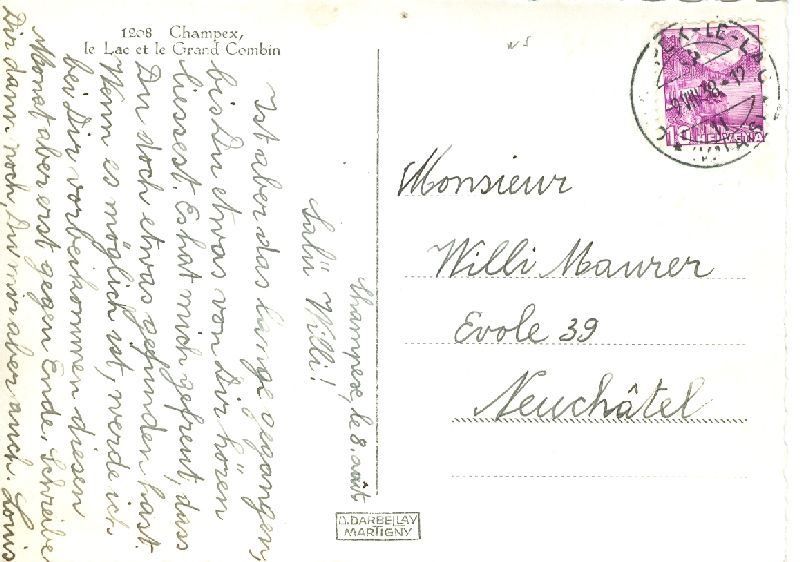 1208 Champex,
le Lac et le Grand Combin
Champex, le 8. août
Salü Willi!
Ist aber das lange gegangen,
bis Du etwas von Dir hören
liessest. Es hat mich gefreut, dass
Du doch etwas gefunden hast.
Wenn es möglich ist, werde ich
bei Dir vorbeikommen diesen
Monat aber erst gegen Ende. Schreibe
Dir dann noch, Du mir aber auch. Louis
D. DARBELLAY
MARTIGNY
Monsieur
Willi Maurer
Evole 39
Neuchâtel
PEX-LE-LAC
9 VIII 38-12
HELVETIA